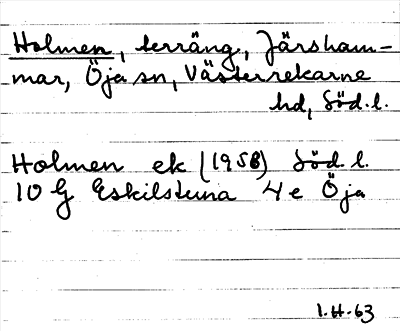 Holmen, terräng, Järsham-
mar, Öja sn, Västerrekarne
hd, Söd. l.
Holmen ek (1958) Söd. l.
10 G Eskilstuna 4 e Öja
I.H-63